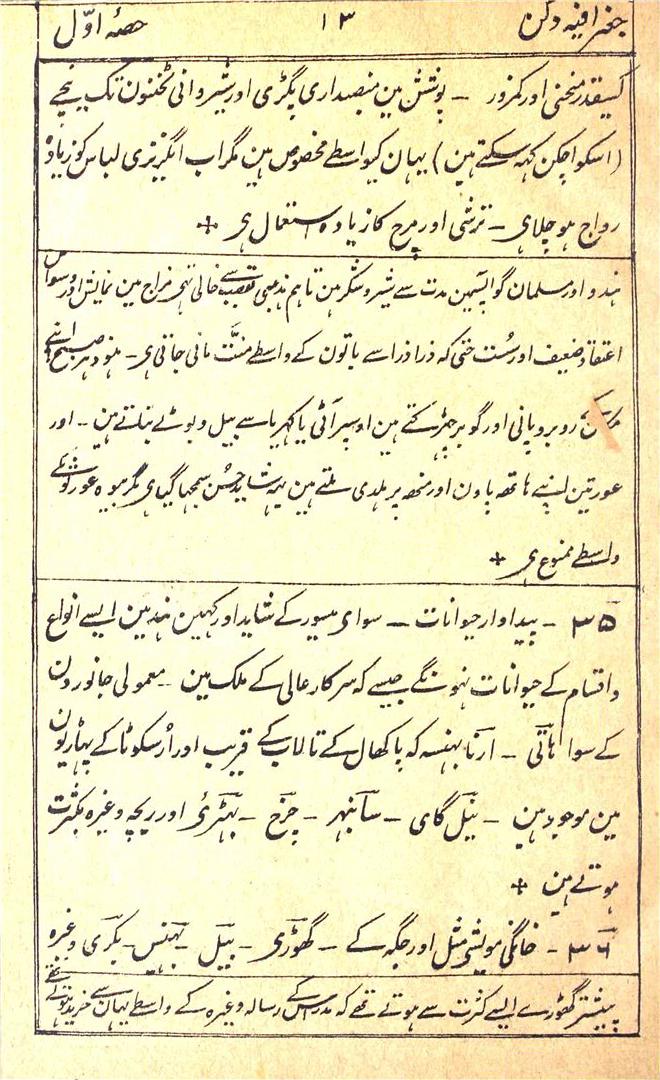 جغرافیہ دکن ۱۳ حصۂ اوّل
کسیقدر منحنی اور کمزور ۔ پوشش مین منصبداری پگڑی اور شیروانی ٹخنون تک نیچے
(اسکو اچکن کہہ سکتے ہین) یہان کیواسطے مخصوص ہین مگر اب انگریزی لباس کو زیادہ
رواج ہو چلا ہی ۔ ترشی اور مرچ کا زیادہ استعمال ہی +
ہندو اور مسلمان گو ایسمین مدت سے شیر و شکر ہین تاہم مذہبی تعصب سے خالی نہین مزاج مین نمایش اور سواس
اعتقاد ضعیف اور سُست حتی کہ ذرا ذرا سے باتون کے واسطے منّت مانی جاتی ہی ۔ ہنود ہر صبح اپنے
مکان روبرو پانی اور گوبر چھڑکتے ہین اوسپر آٹی یا کھریا سے بیل و بوٹے بناتے ہین ۔ اور
عورتین اپنے ہاتھہ پاون اور منھہ پر ہلدی ملتے ہین یہہ شاید حُسن سمجھا گیا ہی مگر بیوہ عورتونکے
واسطے ممنوع ہی +
۳۵ ۔ پیداوار حیوانات ۔ سوای میسور کے شاید اور کہین ہند مین ایسے انواع
و اقسام کے حیوانات نہونگے جیسے کہ سرکار عالی کے ملک مین ۔ معمولی جانورون
کے سوا ہاتی ۔ ارنا بہنسہ کہ پاکھال کے تالاب کے قریب اور ارسکوٹا کے پہاڑیون
مین موجود ہین ۔ نیل گای ۔ سانبہر ۔ چرخ ۔ بہیڑئ اور ریچہہ وغیرہ بکثرت
ہوتے ہین +
۳۶ ۔ خانگی مویشی مثل اور جگہ کے ۔ گھوڑی ۔ بیل ۔ بہینس ۔ بکری وغیرہ
پیشتر گھوڑے ایسے کثرت سے ہوتے تھے کہ مدراس کے رسالہ وغیرہ کے واسطے یہان سے خرید ہوتے تھے